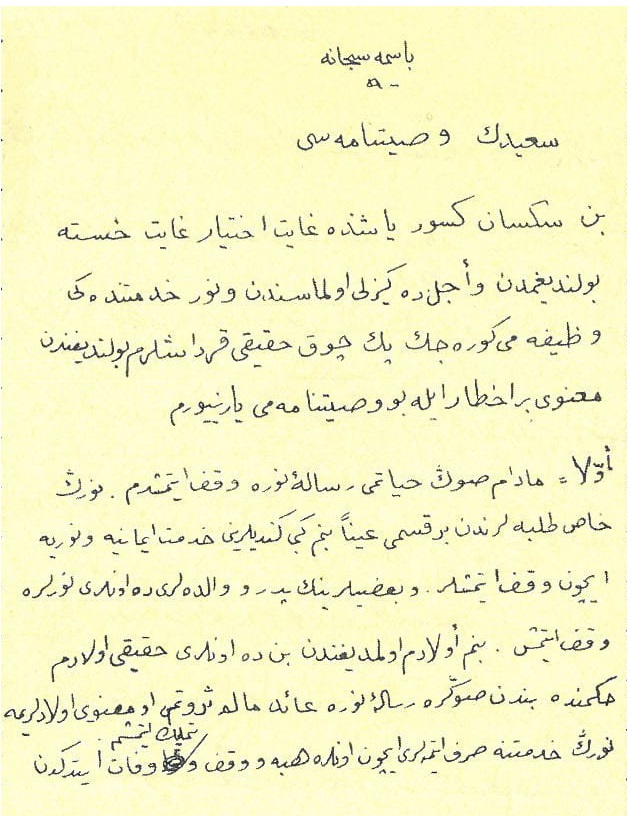 باسمه سبحانه
سعيدك وصيتنامه سى
بن سكسان كسور ياشنده غايت اختيار غايت خسته
بولنديغمدن وأجل ده كيزلى اولماسندن ونور خدمتنده كى
وظيفه مى كوره جك پك چوق حقيقى قرداشلرم بولنديغندن
معنوى بر اخطار ايله بو وصيتنامه مى يازييورم
أوّلا = مادام صوڭ حياتمى رسالۀ نوره وقف ايتمشدم . نورڭ
خاص طلبه لرندن بر قسمى عيناً بنم كبى كنديلرينى خدمت ايمانيه ونوريه
ايچون وقف ايتمشلر . وبعضيلرينك پدر و والده لرى ده اونلرى نورلره
وقف ايتمش . بنم أولادم اولمديغندن بن ده اونلرى حقيقى اولادم
حكمنده بندن صوڭره رسالۀ نوره عائد مالم ثروتمى او معنوى اولادلريمه
تمليك ايتمشم
نورڭ خدمتنه صرف ايتمه لرى ايچون اونلره هبه و وقف و وفات ايتدكدن